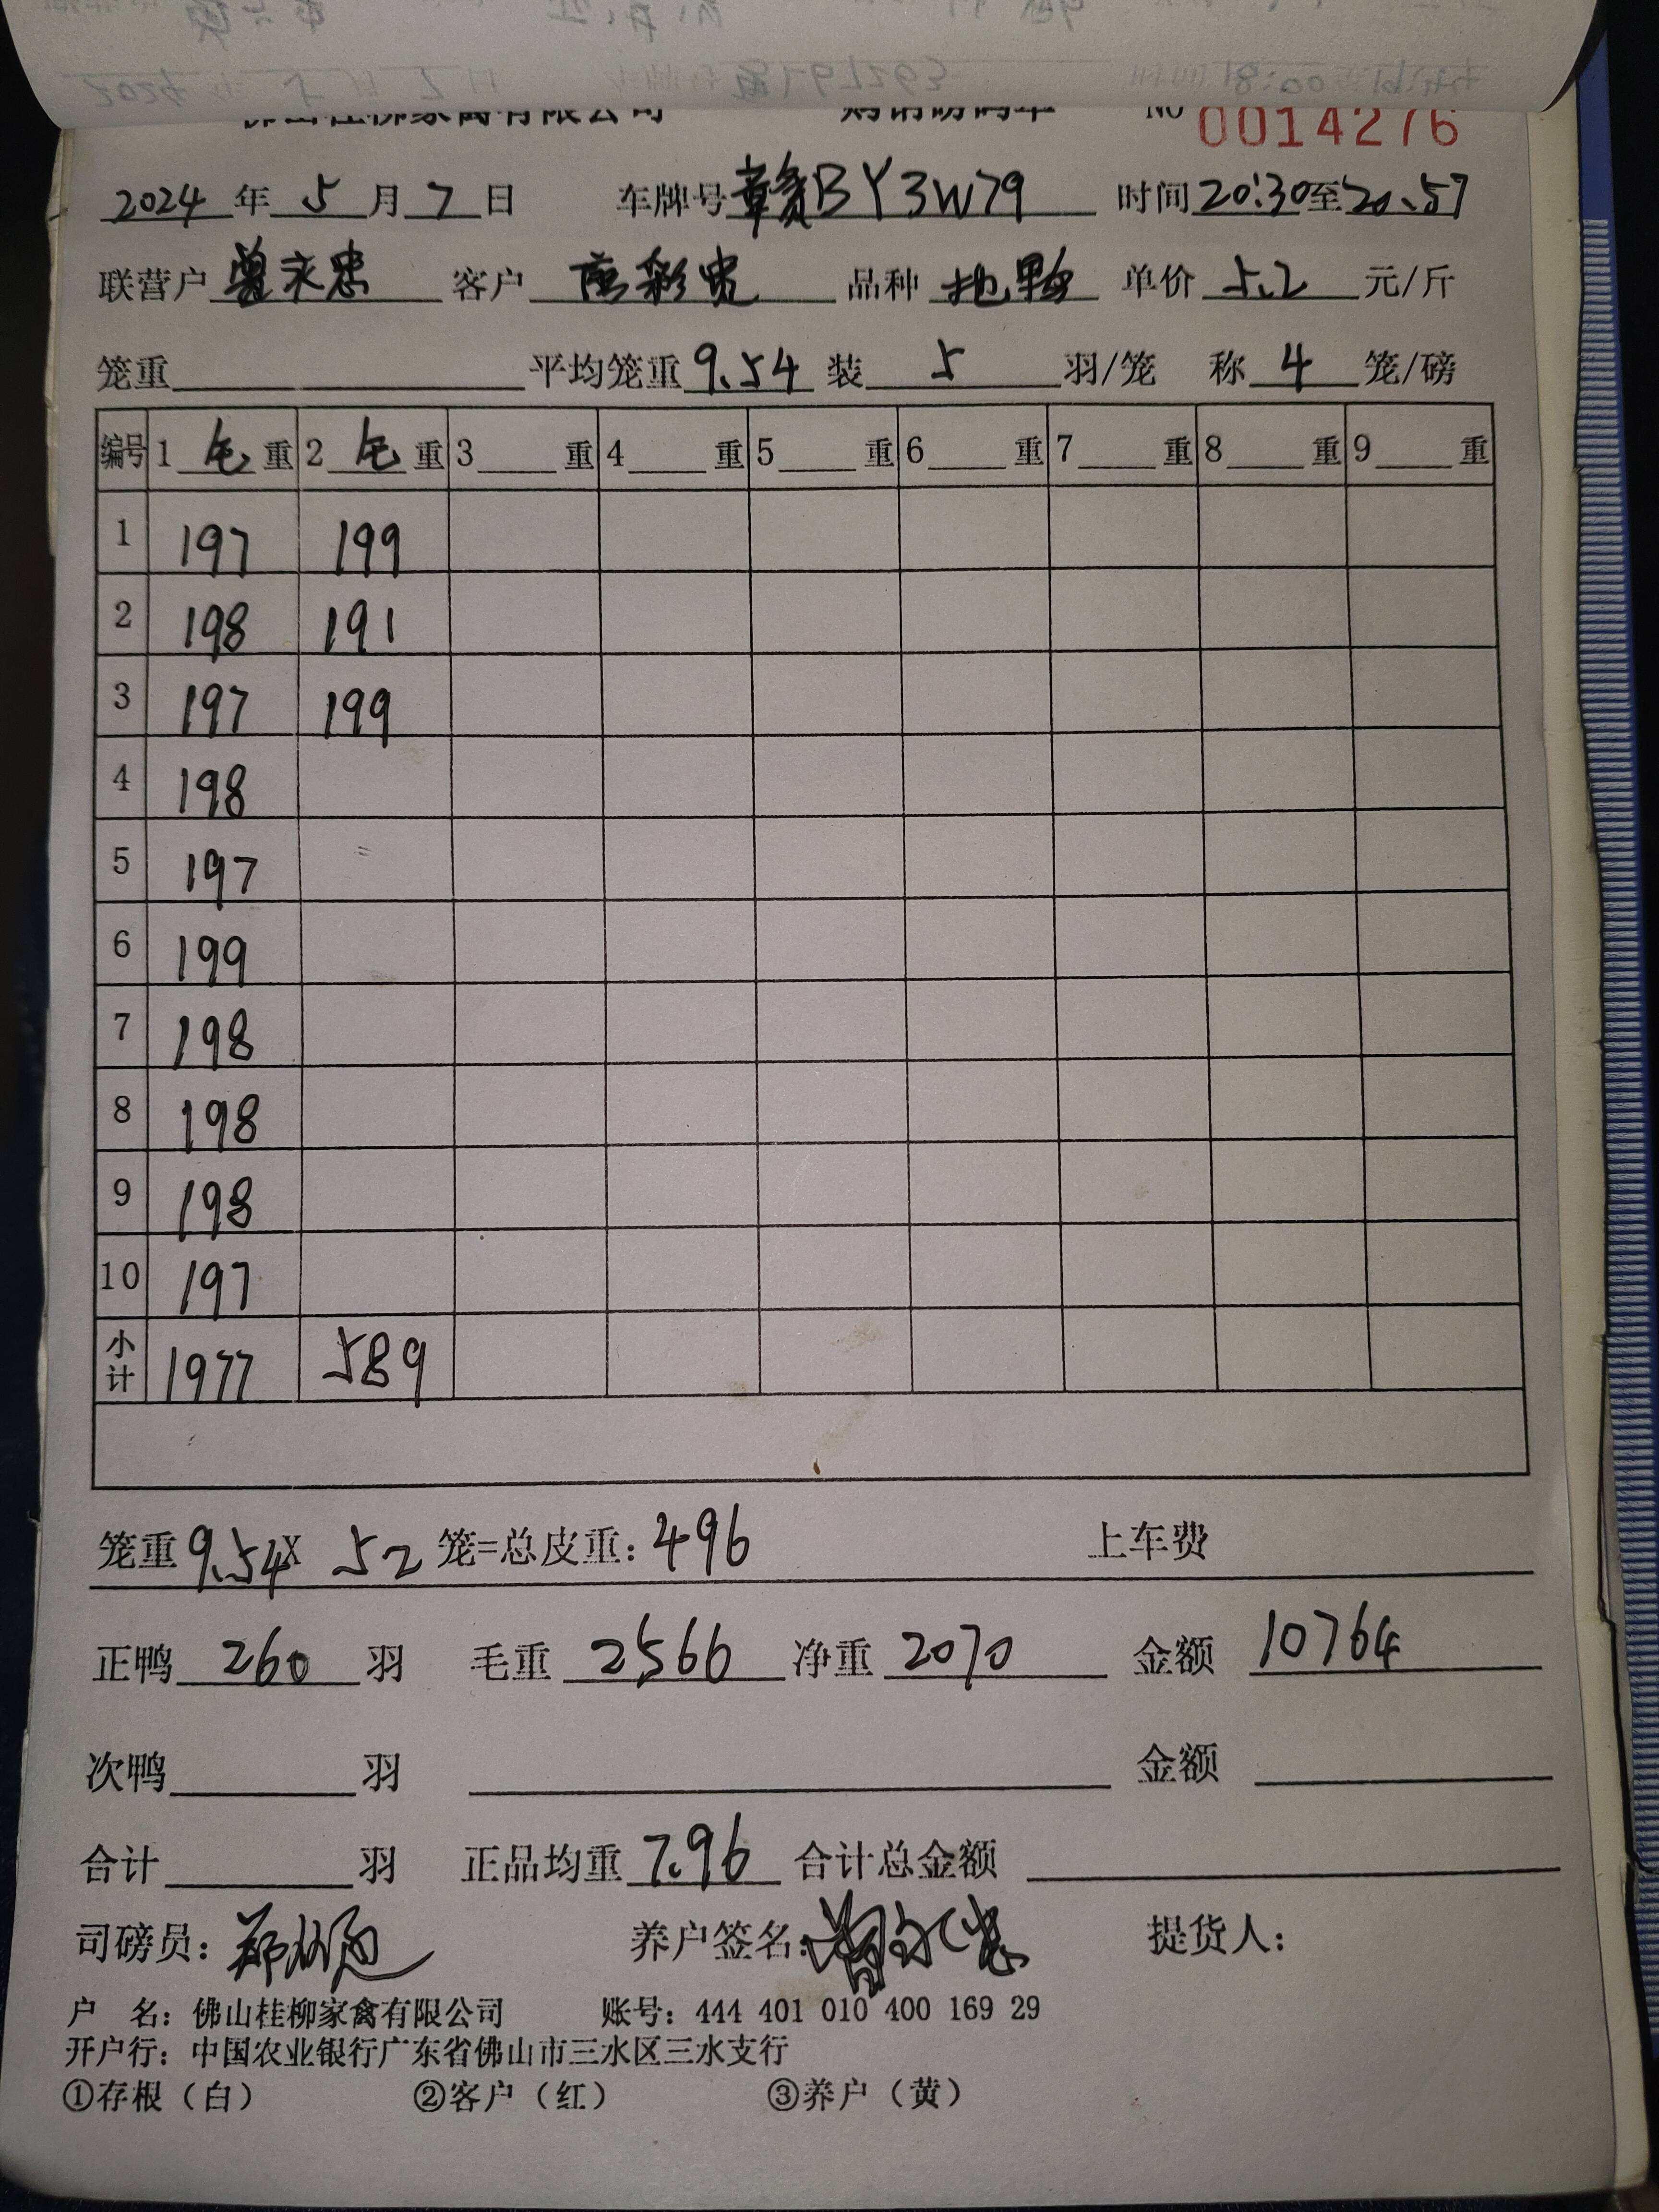 佛山桂柳家禽有限公司 购销磅码单 NO 0014276
2024年5月7日 车牌号 赣BY3W79 时间20:30至20:57
联营户 曾永忠 客户 唐彩忠 品种 地鸭 单价 5.2 元/斤
笼重 平均笼重9.54 装 5 羽/笼 称 4 笼/磅
编号 1 毛 重 2 毛 重 3 重 4 重 5 重 6 重 7 重 8 重 9 重
1 197 199
2 198 191
3 197 199
4 198
5 197
6 199
7 198
8 198
9 198
10 197
小计 1977 589
笼重9.54X 52 笼=总皮重：496 上车费
正鸭 260 羽 毛重 2566 净重 2070 金额 10764
次鸭 羽 金额
合计 羽 正品均重 7.96 合计总金额
司磅员： 养户签名：曾永忠 提货人：
户 名：佛山桂柳家禽有限公司 账号：444 401 010 400 169 29
开户行：中国农业银行广东省佛山市三水区三水支行
①存根（白） ②客户（红） ③养户（黄）